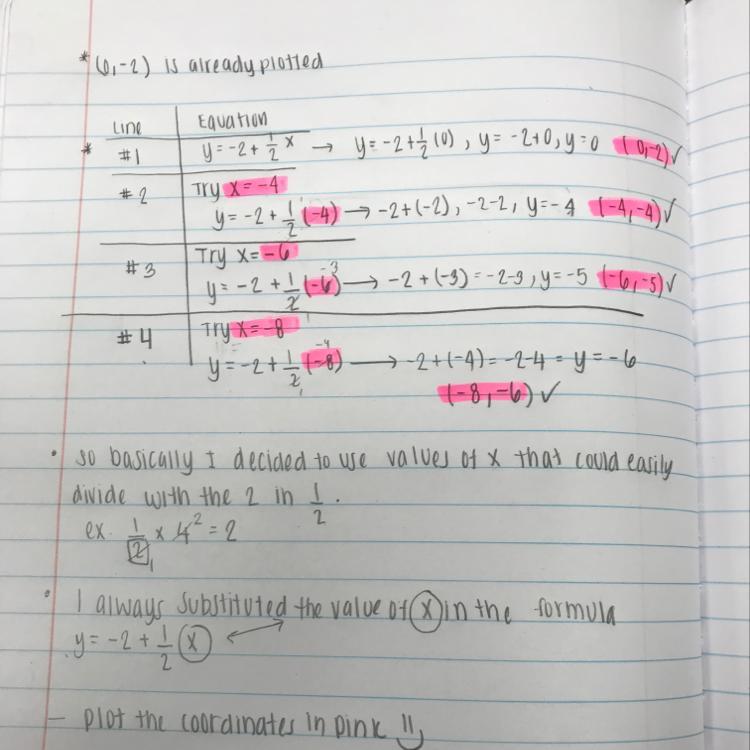 *(0,-2) is already plotted
Line Equation
* #1 y=-2+1/2x → y=-2+1/2(0), y=-2+0, y=0 (0,-2)✓
#2 Try x=-4
y=-2+1/2(-4) → -2+(-2), -2-2, y=-4 (-4,-4)✓
#3 Try x=-6
y=-2+1/2(-6)-3 → -2+(-3)=-2-3, y=-5 (-6,-5)✓
#4 Try x=-8
y=-2+1/2(-8)-4 → -2+(-4)=-2-4=y=-6
(-8,-6)✓
• so basically I decided to use values of x that could easily
divide with the 2 in 1/2.
ex. 1/2 x 4² = 2
1
• I always substituted the value of (x) in the formula
y=-2+1/2(x)
- plot the coordinates in pink :)